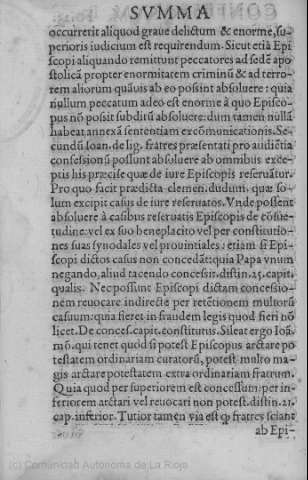 SVMMA
occurrerit aliquod graue delictum & enorme, su-
perioris iudicium est requirendum. Sicut etiā Epi
scopi aliquando remittunt peccatores ad sedē apo
stolicā propter enormitatem criminū & ad terro-
rem aliorum quāuis ab eo possint absoluere: quia
nullum peccatum adeo est enorme à quo Episco-
pus nō possit subditū absoluere: dum tamen nullā
habeat annexā sententiam excōmunicationis. Se-
cundū Ioan. de lig. fratres præsentati pro audiētia
confessionū possunt absoluere ab omnibus exce-
ptis his præcise quæ de iure Episcopis reseruātur.
Pro quo facit prædicta clemen. dudum. quæ so-
lum excipit casus de iure reseruatos. Vnde possent
absoluere à casibus reseruatis Episcopis de cōsue-
tudine: vel ex suo beneplacito vel per constitutio-
nes suas synodales vel prouintiales: etiam si Epi-
scopi dictos casus non concedāt: quia Papa vnum
negando, aliud tacendo concessit. distin. 25. capit.
qualis. Nec possunt Episcopi dictam concessio-
nem reuocare indirectè per retētionem multorū
casuum: quia fieret in fraudem legis quod fieri nō
licet. De conces. capit. constitutus. Sileat ergo Ioā.
mō. qui tenet quod si potest Episcopus arctare po
testatem ordinariam curatorū, potest multo ma-
gis arctare potestatem extra ordinariam fratrum.
Quia quod per superiorem est concessum: per in-
feriorem arctari vel reuocari non potest. distin. 21.
cap. inferior. Tutior tamen via est ꝙ fratres sciant
ab Epi-
(c) Comunidad Autónoma de La Rioja